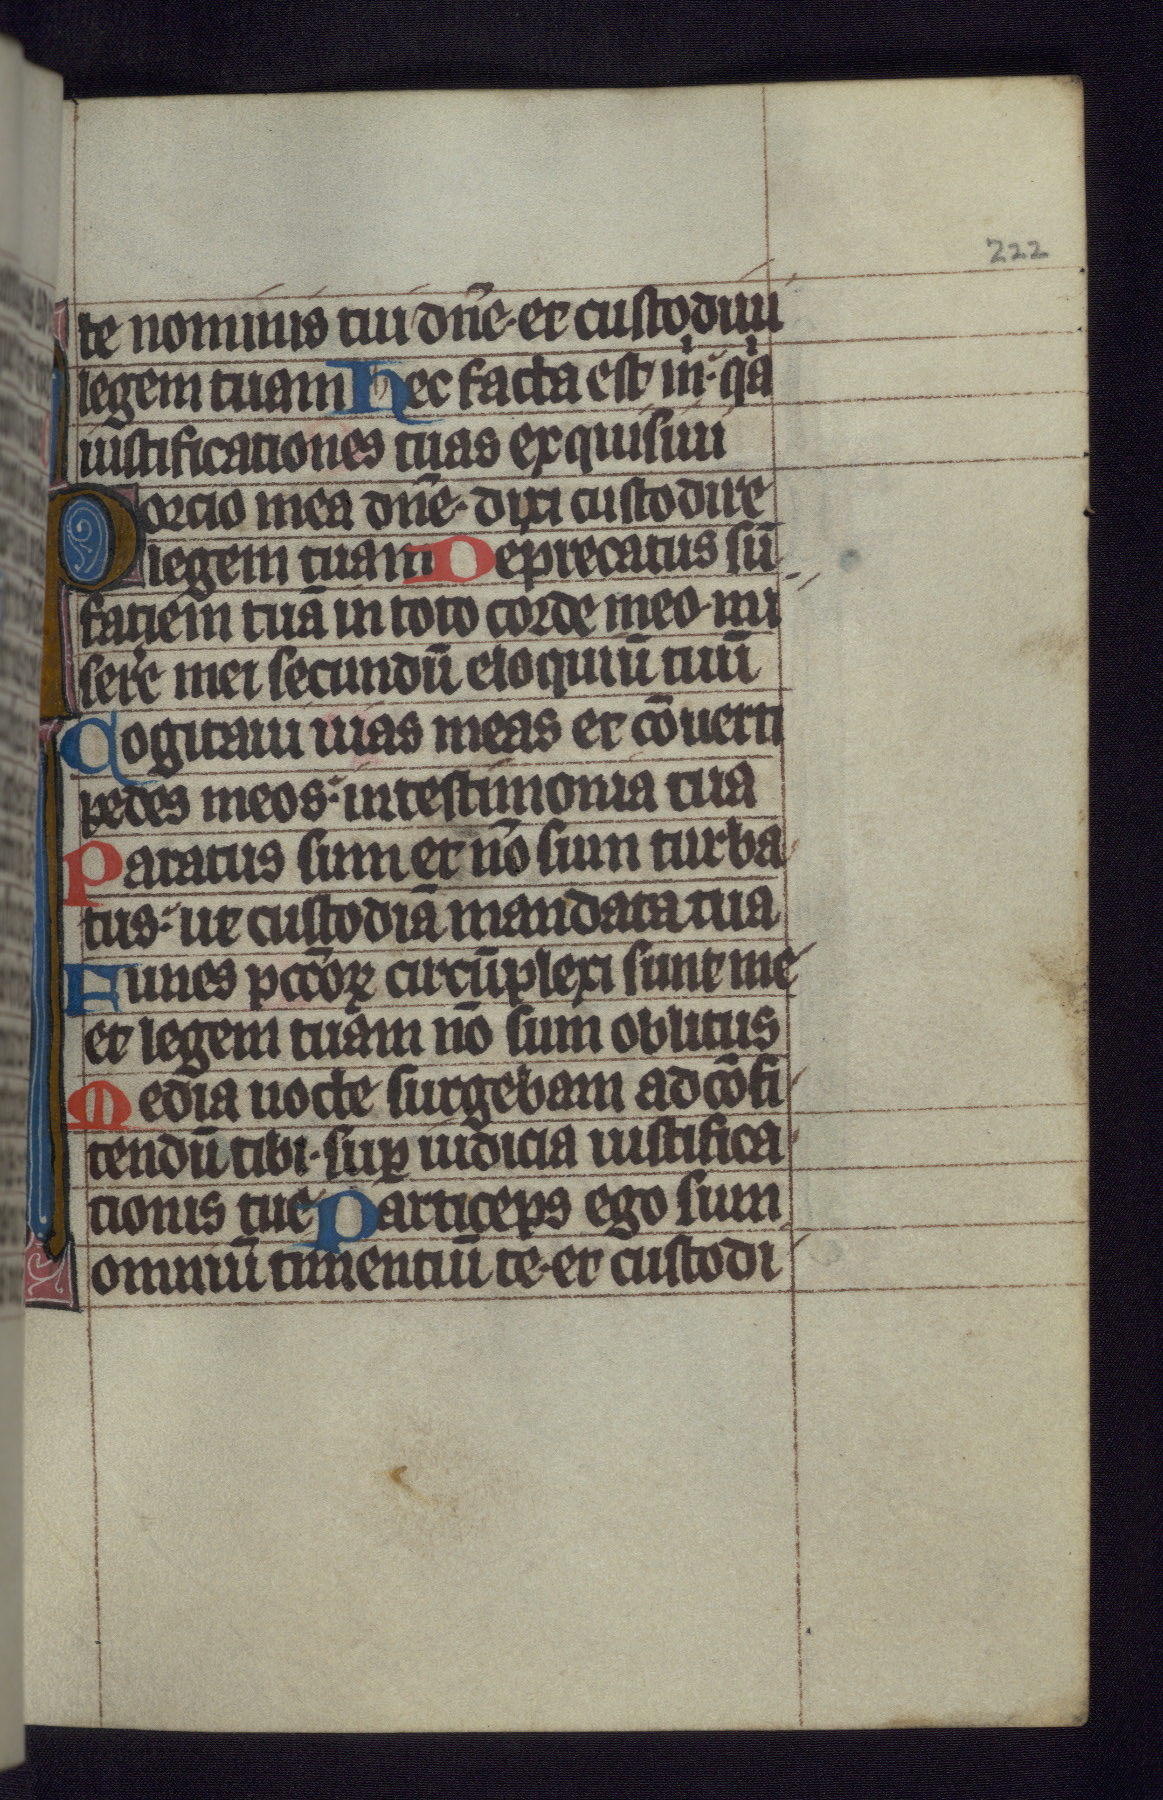 222
te nominis tui dn̄e· et custodiui
legem tuam Hec facta est m̍· q̍a
iustificationes tuas exquisiui
Porcio mea dn̄e· dixi custodire
legem tuam Deprecatus sū
faciem tuā in toto corde meo· mi
sere̍e mei secundū eloquiū tuū
Cogitaui uias meas et cōuerti
pedes meos· in testimonia tua
Paratus sum et nō sum turba
tus· ut custodiā mandata tua
Funes pcc̄oꝝ circūplexi sunt me
et legem tuam nō sum oblitus
Media nocte surgebam ad cōfi
tendū tibi· suꝑ iudicia iustifica
tionis tue Particeps ego sum
omniū timentiū te· et custodi